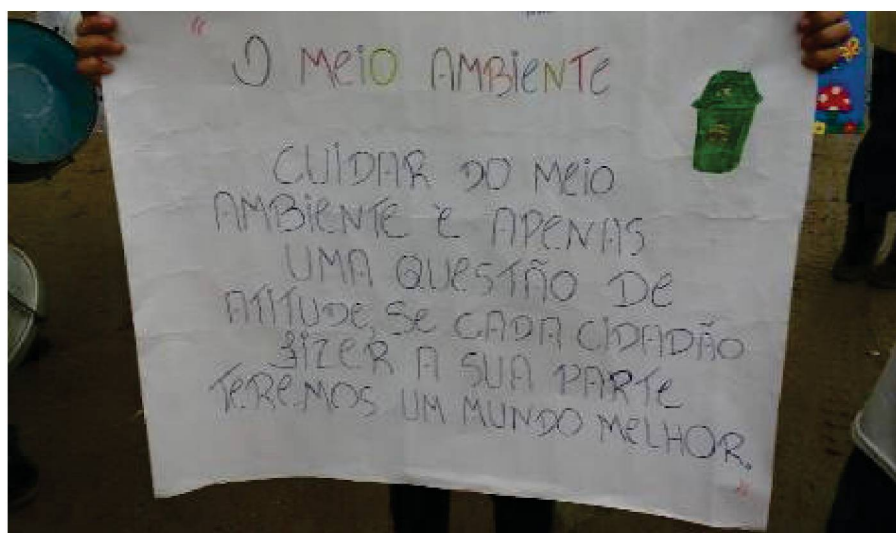 "
O MEIO AMBIENTE
CUIDAR DO MEIO
AMBIENTE É APENAS
UMA QUESTÃO DE
ATITUDE, SE CADA CIDADÃO
FIZER A SUA PARTE
TEREMOS UM MUNDO MELHOR.
"